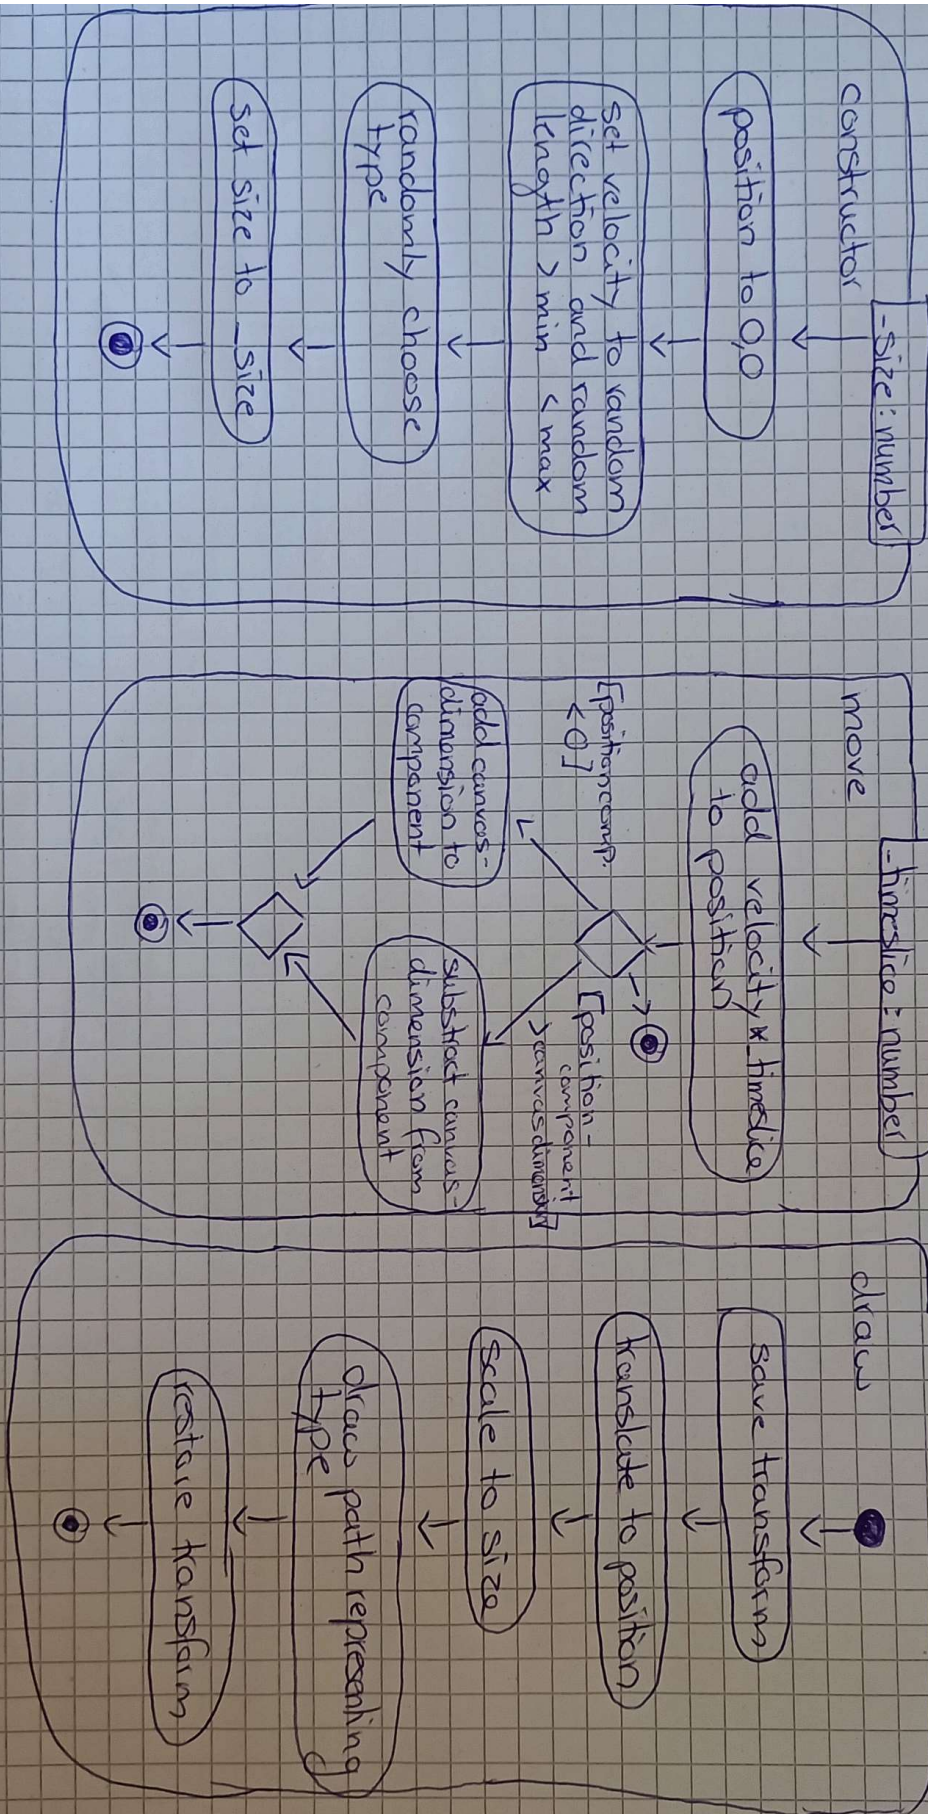 constructor
_size: number
position to 0,0
set velocity to random
direction and random
length > min < max
randomly choose
type
set size to _size
move
_timeslice: number
add velocity *_timeslice
to position
[position comp.
< 0]
[position-
component
> canvasdimension]
add canvas-
dimension to
component
substract canvas-
dimension from
component
draw
save transform
translate to position
scale to size
draw path representing
type
restore transform